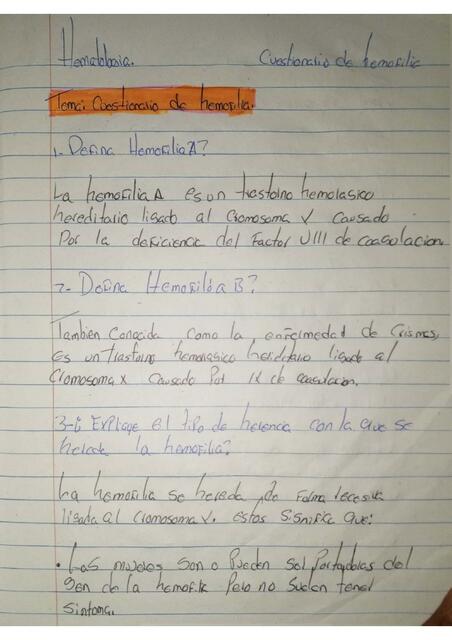 Hematologia. Cuestionario de hemofilia
Tema: Cuestionario de hemofilia.
1- Defina Hemofilia A?
La hemofilia A es un trastorno hemolasico
hereditario ligado al Cromosoma X causado
Por la deficiencia del Factor VIII de coagulacion.
2- Defina Hemofilia B?
También Conocida Como la enfermedad de Crismes,
es un trastorno hemorasico hereditario ligado al
Cromosoma X Causado Por IX de coagulacion.
3-¿ Explique el tipo de herencia con la que se
hereda la hemofilia?
La hemofilia se hereda de forma recesiva
ligada al cromosoma X. estos significa que:
• Las mujeres son o Pueden ser Portadoras del
gen de la hemofilia Pero no suelen tener
sintoma.